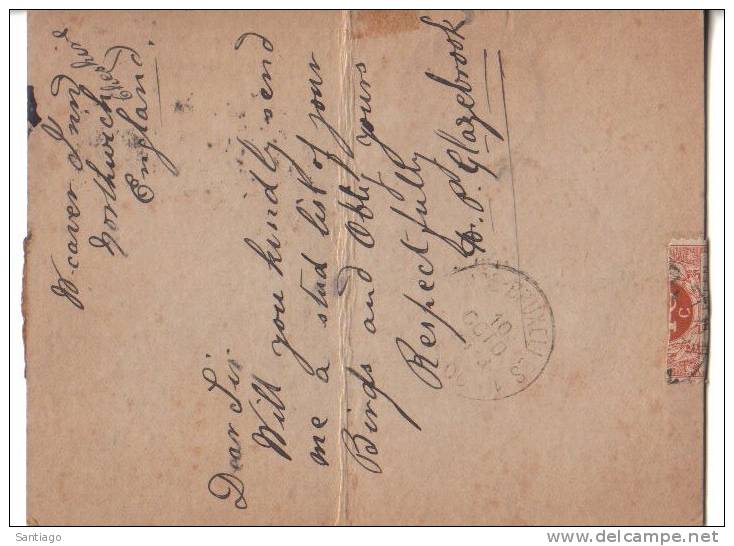 Weaver Inn
Northwich
Cheshire
England.
Dear Sir
Will you kindly send
me a stud list of your
Birds and Oblige yours
Respectfully
P. Glazebrook
BRUXELLES
10
OCTO
C
Santiago
delcampe.net